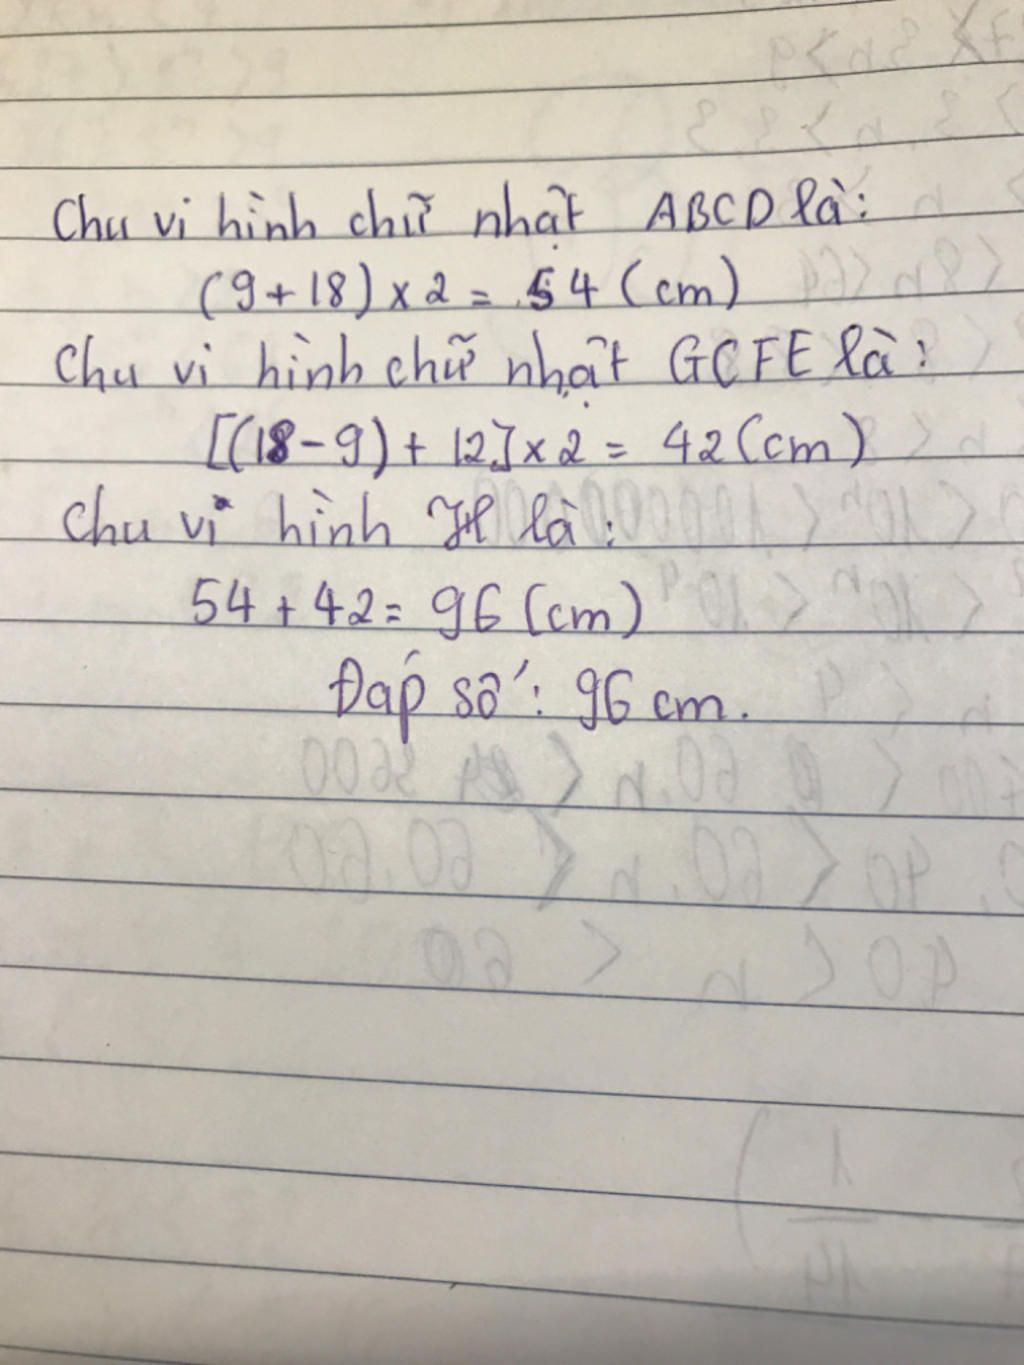 Chu vi hình chữ nhật ABCD là:
(9+18)×2 = 54 (cm)
Chu vi hình chữ nhật GCFE là:
[(18-9)+ 12]×2 = 42 (cm)
Chu vi hình H là:
54 + 42 = 96 (cm)
Đáp số: 96 cm.